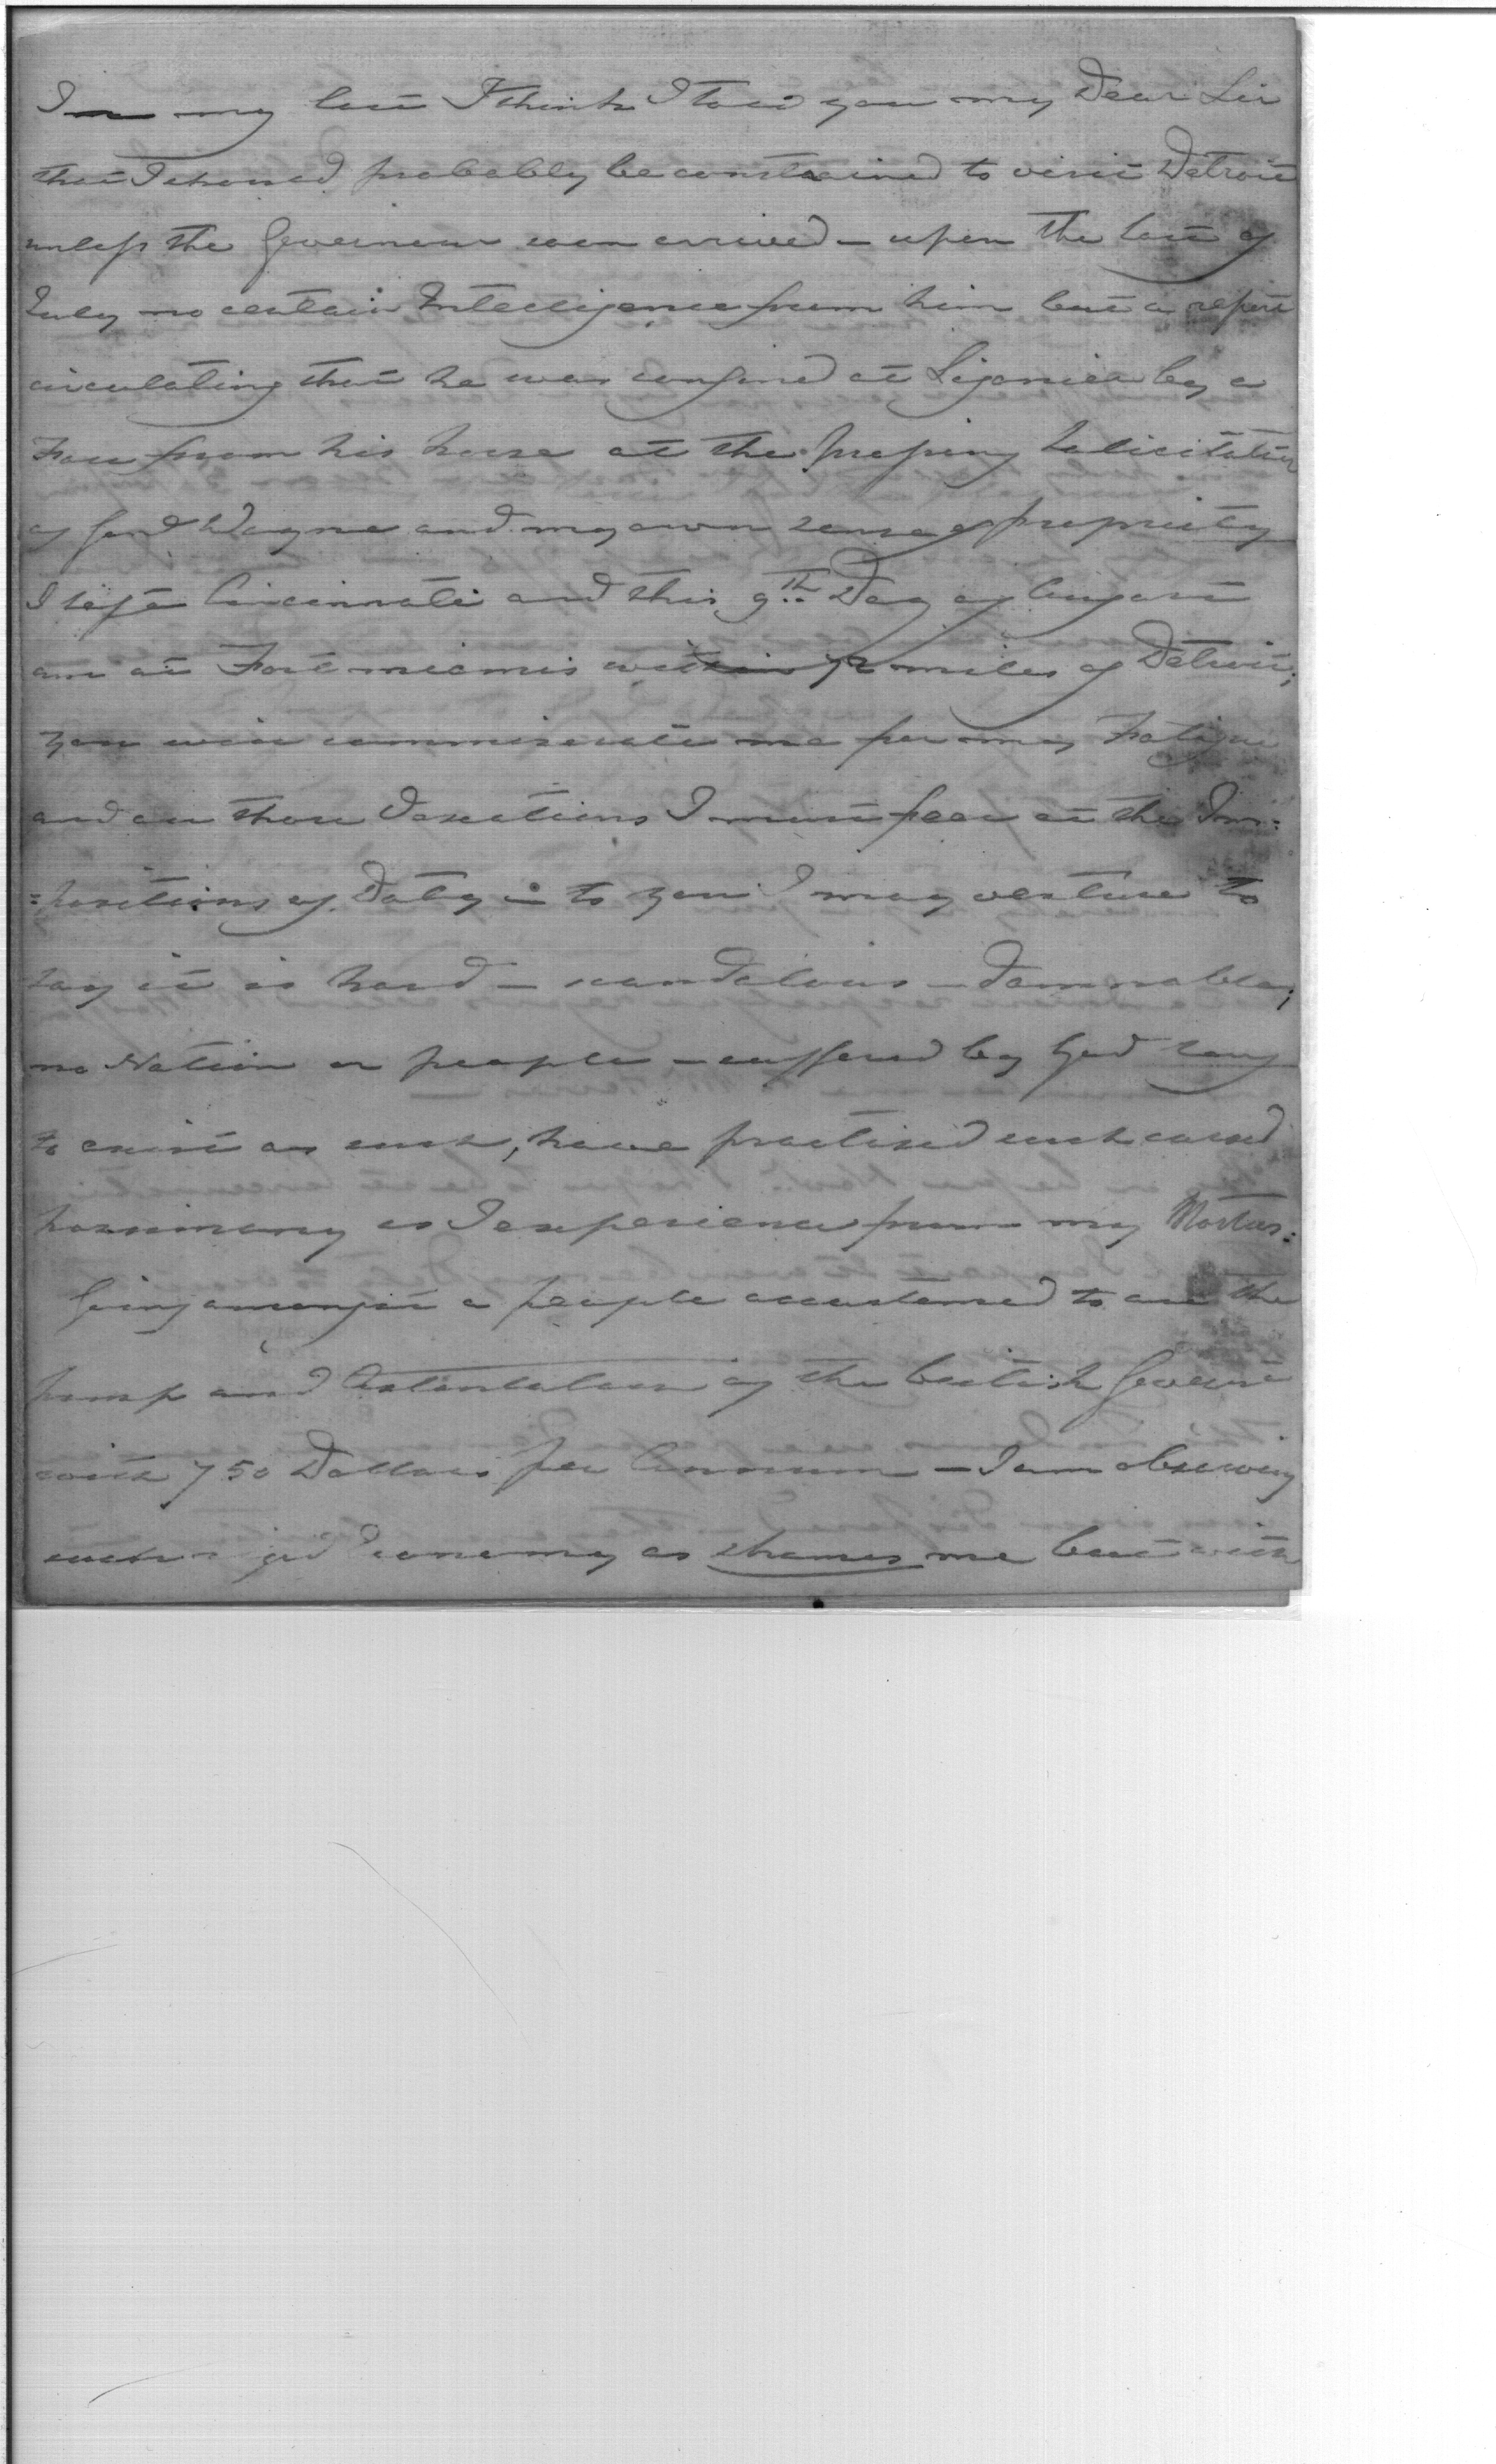 In my last I think I told you my Dear Sir
that I should probably be constrained to visit Detroit
unless the Governour soon arrived – upon the last of
July no certain Intelligence from him but a report
circulating that he was confined at Ligonier by a
Fall from his horse at the pressing Solicitation
of Genl Wayne and my own sense of propriety
I left Cincinnati and this 9th Day of August
am at Fort miamis within 72 miles of Detroit;
you will commiserate me for my Fatigue
and all those Vexations I must feel at the Im:
:positions of Duty – to you I may venture to
say it is hard – scandalous – damnable;
no Nation or people – suffered by God long
to exist as such, have practised such cursed
parsimony as I experience from my Masters:
Going amongst a people accustomed to all the
pomp and Ostentation of the british Governt
with 750 Dollars per Annum – I am observing
such economy as shames me but with